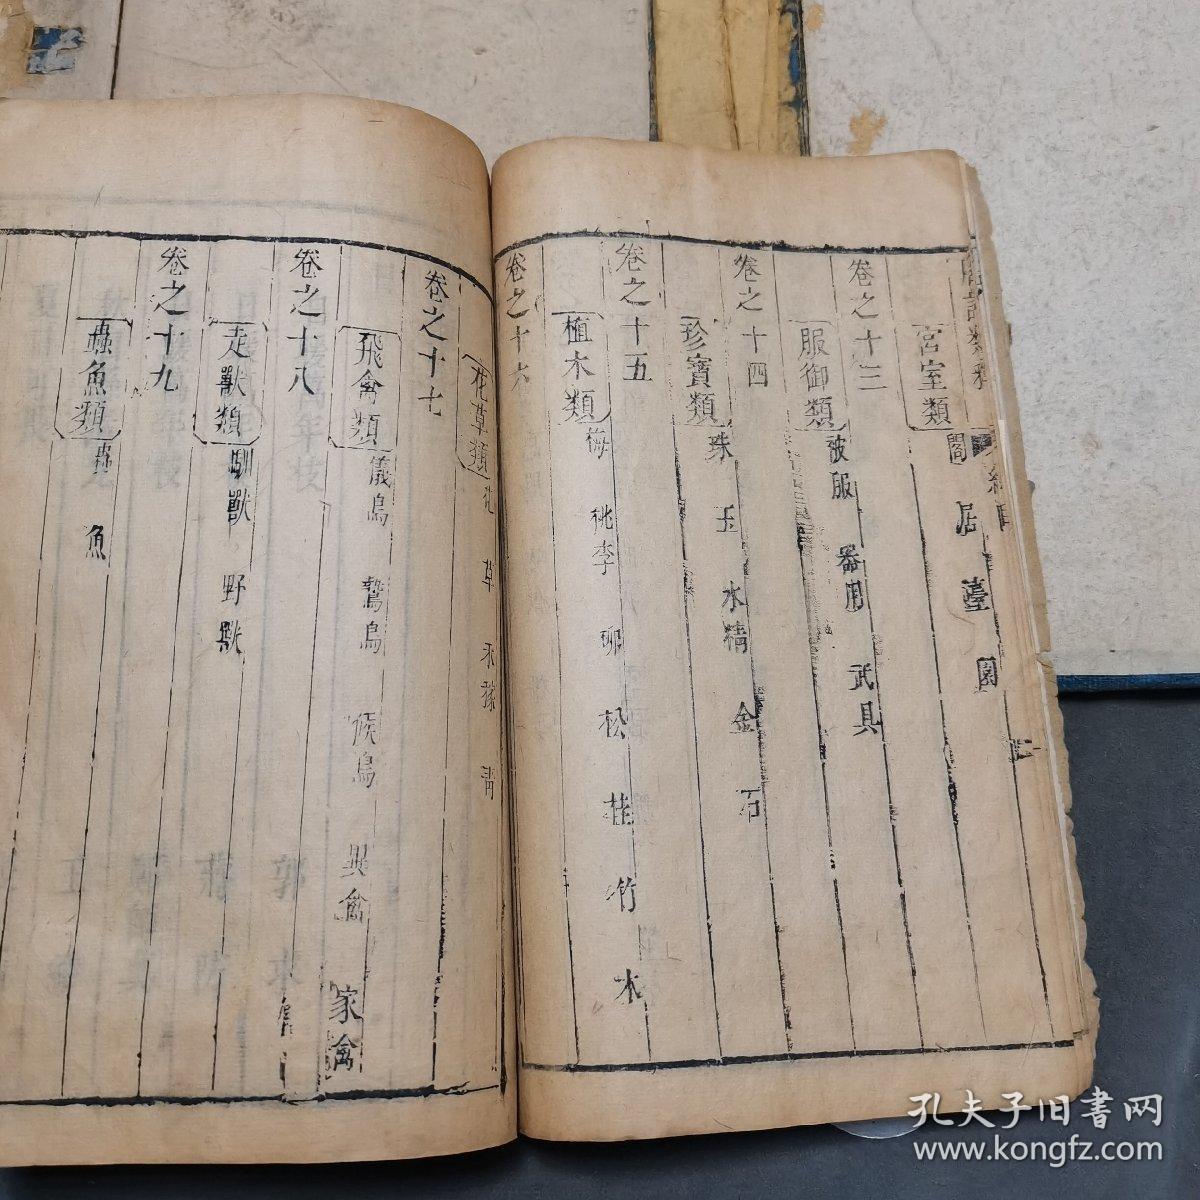 唐詩類苑
宮室類 閣 居 臺 閣
卷之十三
服御類 被服 器用 武具
卷之十四
珍寶類 珠 玉 水精 金石
卷之十五
植木類 梅 桃李 柳 松 桂 竹 木
卷之十六
花草類 花 草
卷之十七
飛禽類 儀鳥 鷙鳥 候鳥 異禽 家禽
卷之十八
走獸類 馴獸 野獸
卷之十九
蟲魚類 蟲 魚
孔夫子旧書网
www.kongfz.com